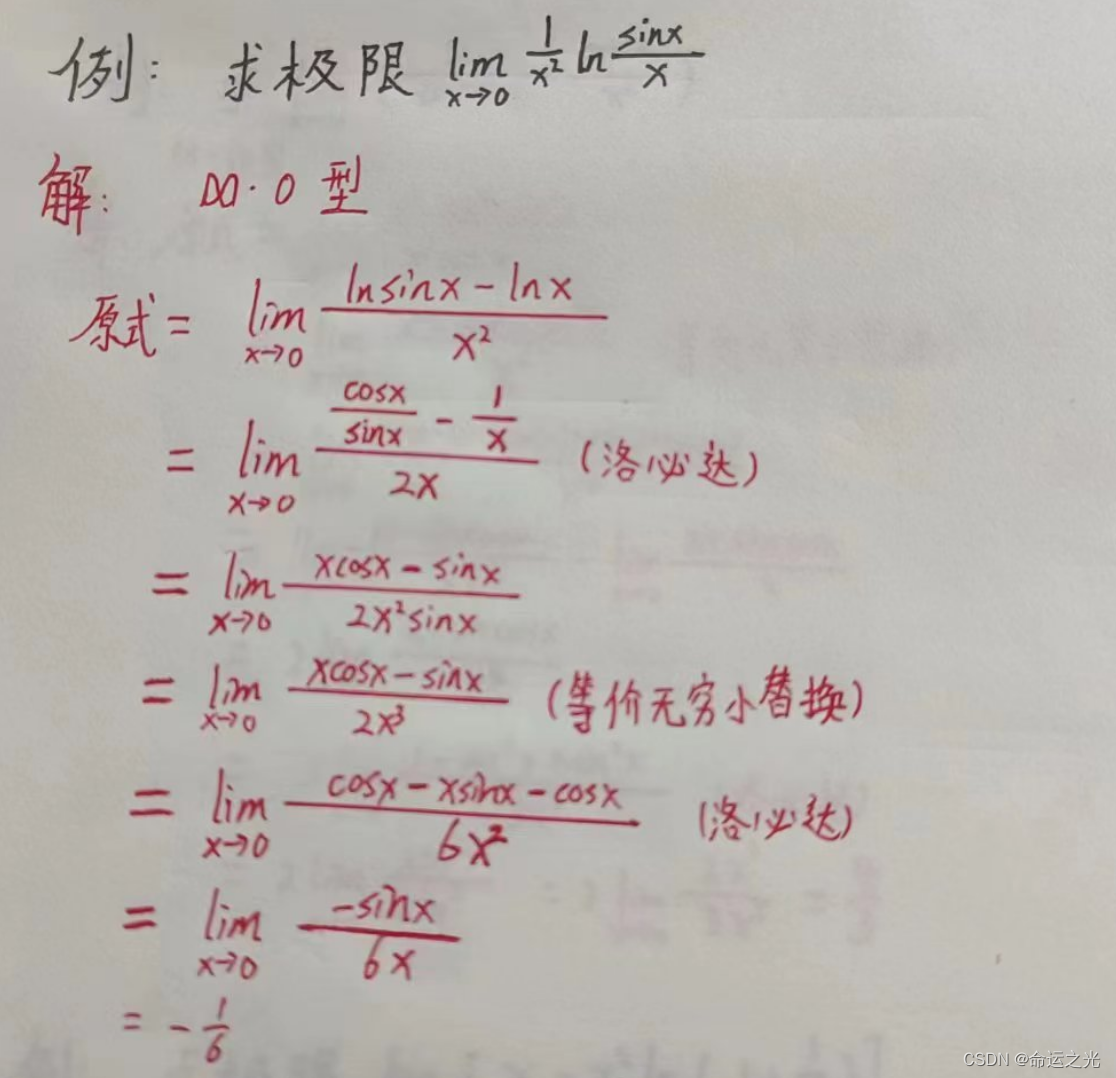 例: 求极限 lim x→0 1/x² ln sinx/x
解: ∞·0 型
原式 = lim x→0 (lnsinx - lnx)/x²
= lim x→0 (cosx/sinx - 1/x)/2x (洛必达)
= lim x→0 (xcosx - sinx)/2x²sinx
= lim x→0 (xcosx - sinx)/2x³ (等价无穷小替换)
= lim x→0 (cosx - xsinx - cosx)/6x² (洛必达)
= lim x→0 -sinx/6x
= -1/6
CSDN @命运之光